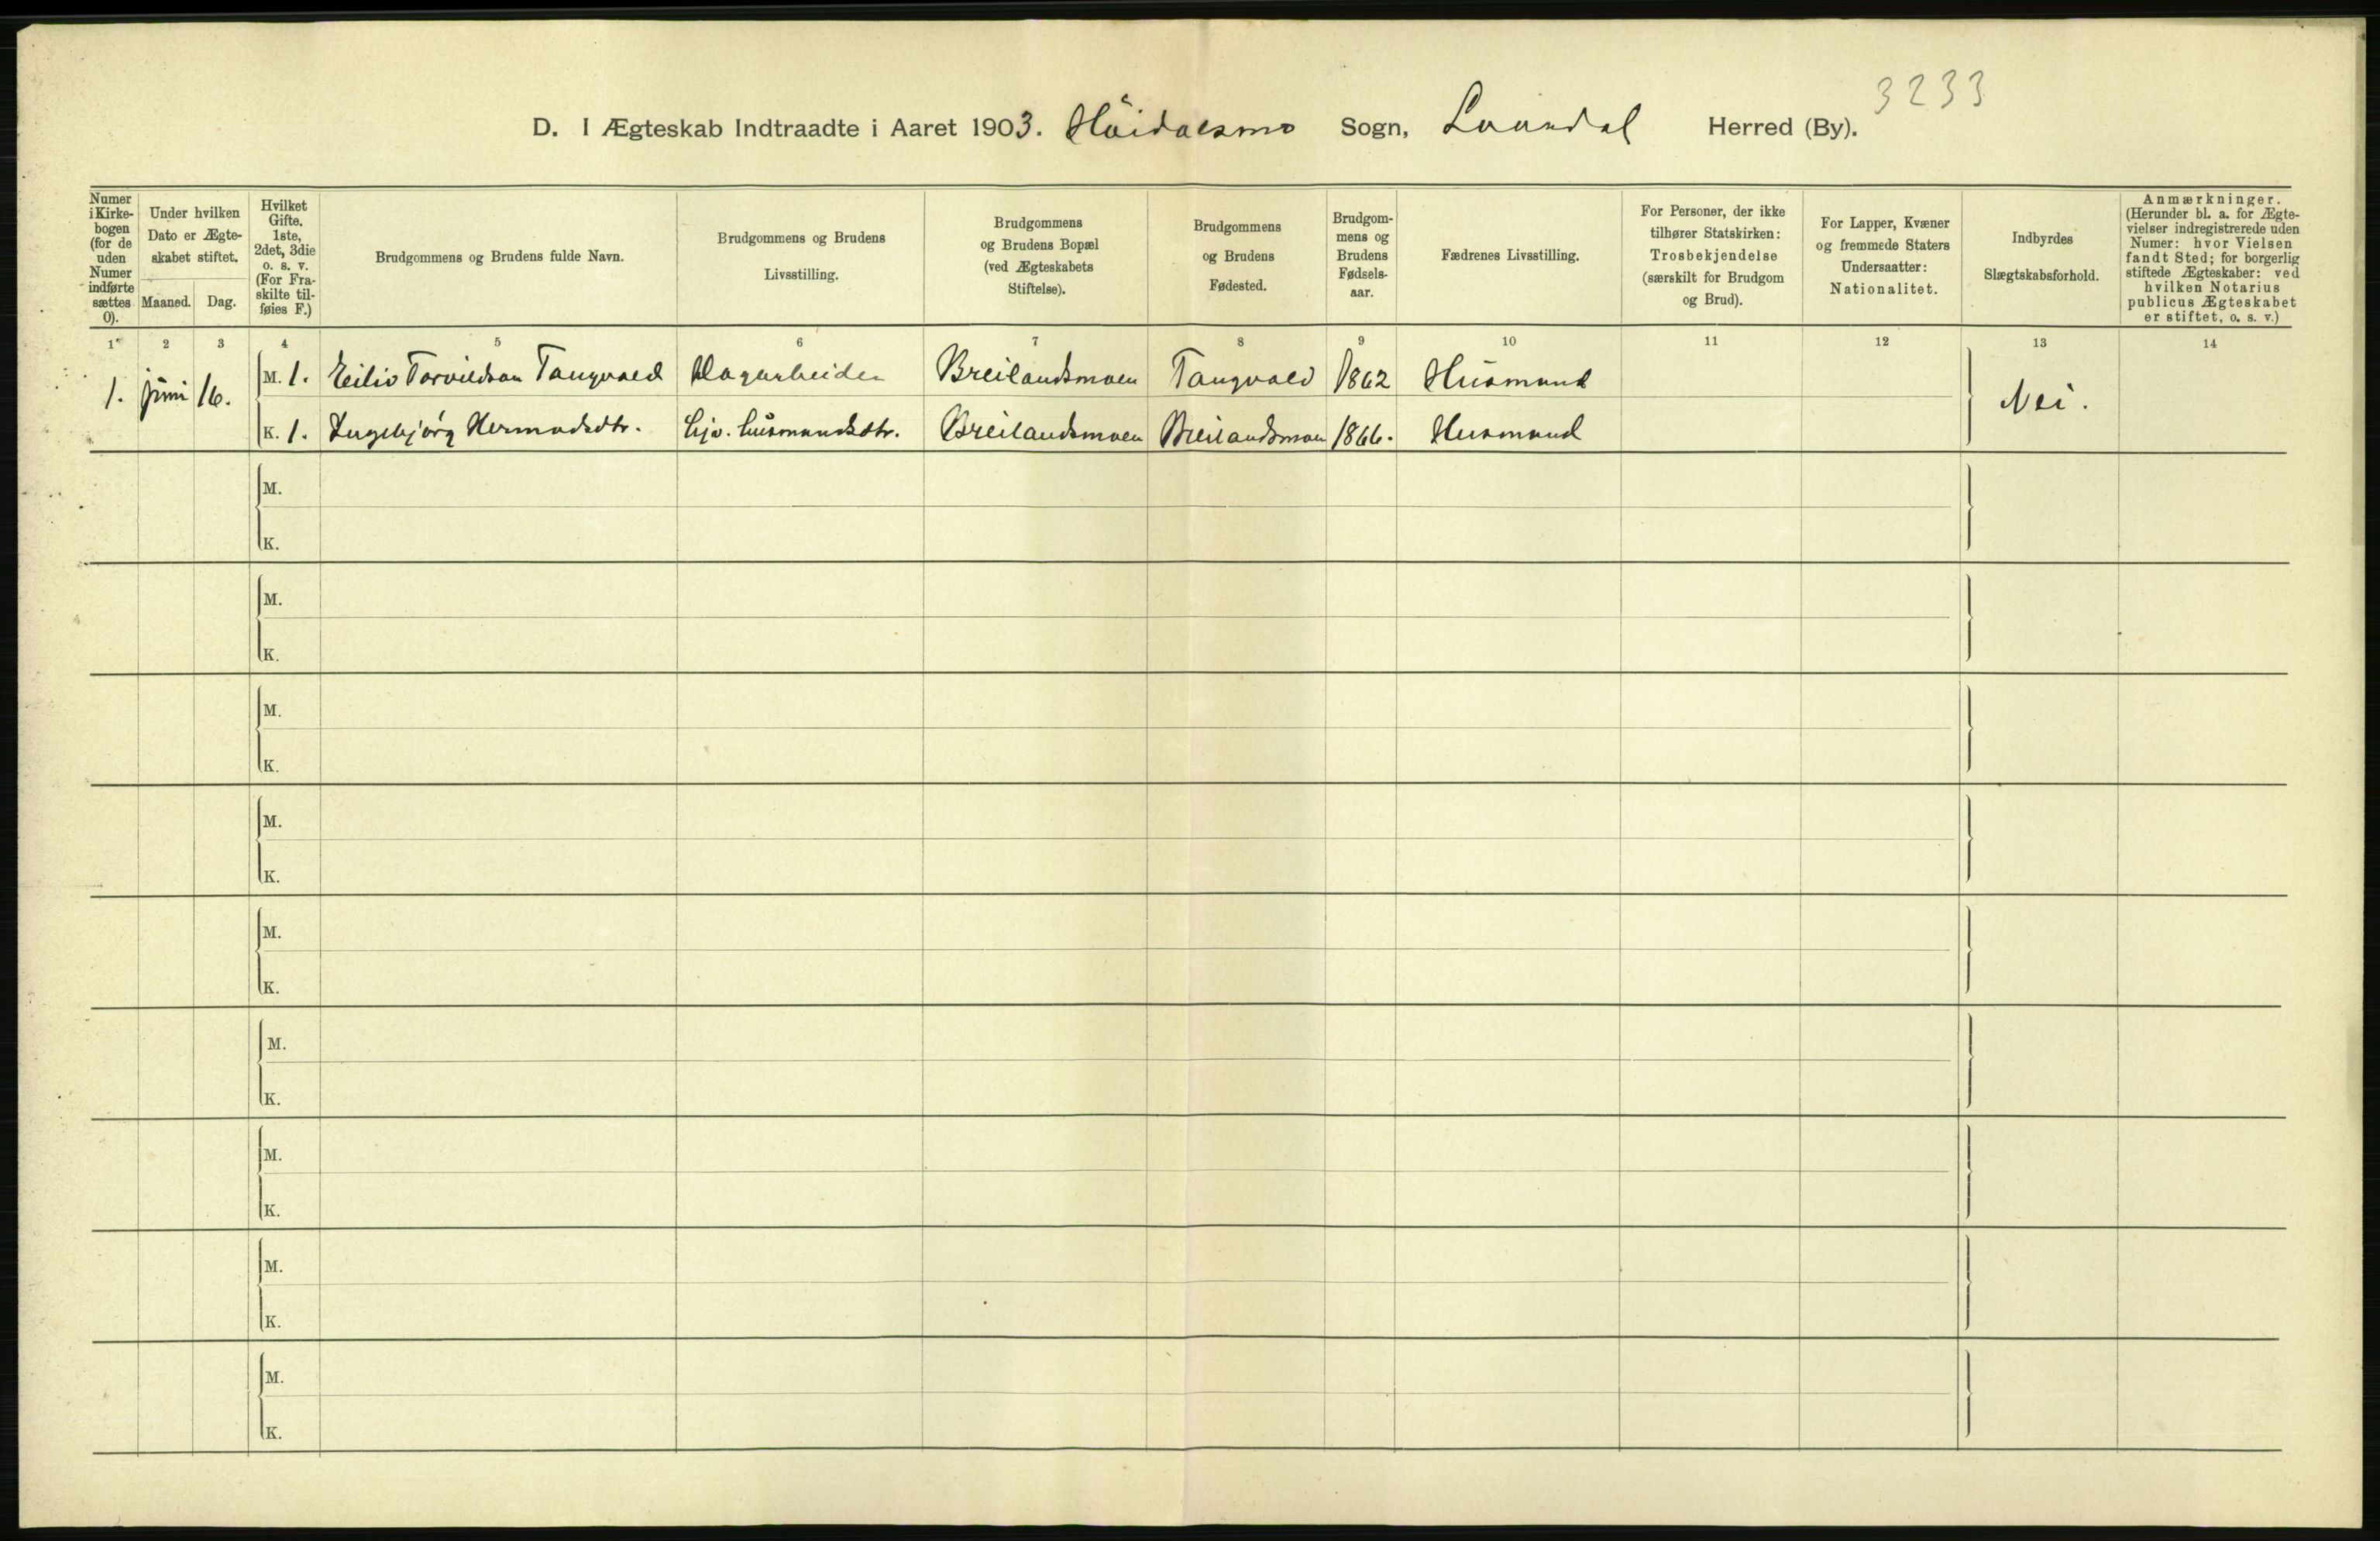 3233
D. I Ægteskab Indtraadte i Aaret 1903. Höidalsmo Sogn, Laurdal Herred (By).
Numer i Kirkebogen (for de uden Numer indførte sættes 0).
Under hvilken Dato er Ægteskabet stiftet.
Maaned. Dag.
Hvilket Gifte. 1ste, 2det, 3die o. s. v. (For Fraskilte tilføies F.)
Brudgommens og Brudens fulde Navn.
Brudgommens og Brudens Livsstilling.
Brudgommens og Brudens Bopæl (ved Ægteskabets Stiftelse).
Brudgommens og Brudens Fødested.
Brudgommens og Brudens Fødselsaar.
Fædrenes Livsstilling.
For Personer, der ikke tilhører Statskirken: Trosbekjendelse (særskilt for Brudgom og Brud).
For Lapper, Kvæner og fremmede Staters Undersaatter: Nationalitet.
Indbyrdes Slægtskabsforhold.
Anmærkninger. (Herunder bl. a. for Ægtevielser indregistrerede uden Numer: hvor Vielsen fandt Sted; for borgerlig stiftede Ægteskaber: ved hvilken Notarius publicus Ægteskabet er stiftet, o. s. v.)
1 2 3 4 5 6 7 8 9 10 11 12 13 14
1. juni 16. M. 1. Eiliv Torvildson Tangvald Dagarbeider Breilandsmoen Tangvald 1862 Husmand Nei.
K. 1. Ingebjörg Hermodsdtr. hjv. husmandsdtr. Breilandsmoen Breilandsmoen 1866. Husmand
M.
K.
M.
K.
M.
K.
M.
K.
M.
K.
M.
K.
M.
K.
M.
K.
M.
K.